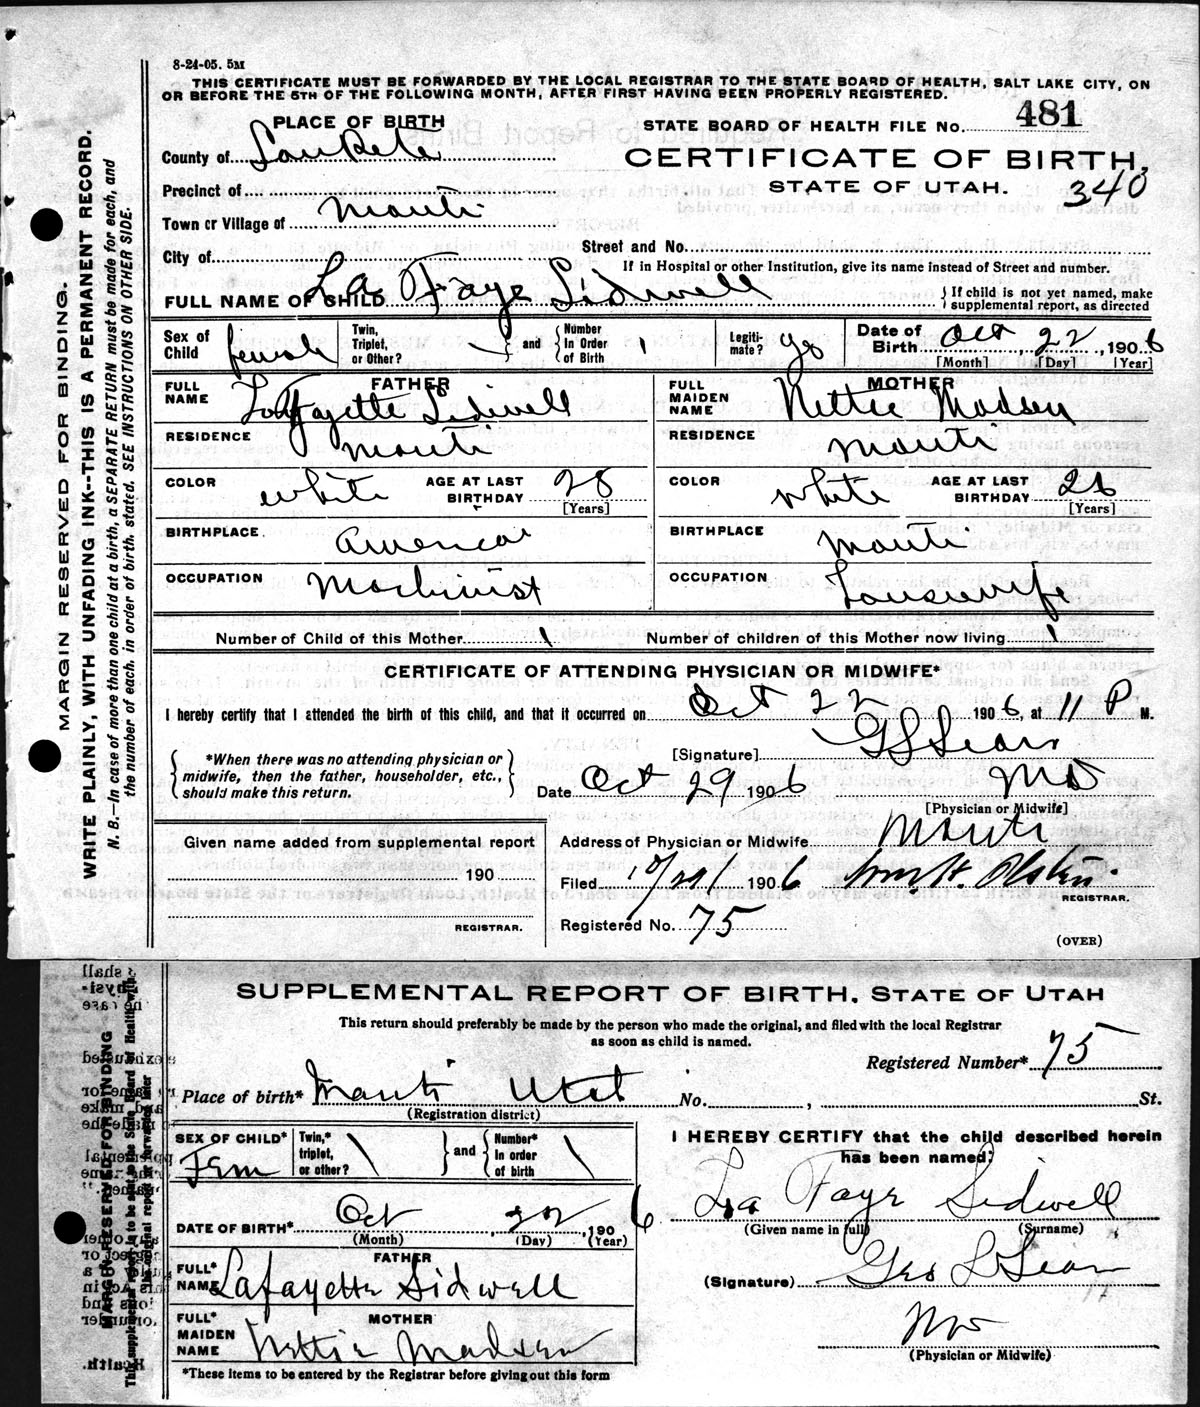 8-24-05. 5M
THIS CERTIFICATE MUST BE FORWARDED BY THE LOCAL REGISTRAR TO THE STATE BOARD OF HEALTH, SALT LAKE CITY, ON
OR BEFORE THE 5TH OF THE FOLLOWING MONTH, AFTER FIRST HAVING BEEN PROPERLY REGISTERED.
MARGIN RESERVED FOR BINDING.
WRITE PLAINLY, WITH UNFADING INK--THIS IS A PERMANENT RECORD.
N. B.—In case of more than one child at a birth, a SEPARATE RETURN must be made for each, and
the number of each, in order of birth, stated. SEE INSTRUCTIONS ON OTHER SIDE.
PLACE OF BIRTH
STATE BOARD OF HEALTH FILE No. 481
County of SanPete
CERTIFICATE OF BIRTH,
STATE OF UTAH. 340
Precinct of
Town or Village of Manti
Street and No.
City of
If in Hospital or other Institution, give its name instead of Street and number.
FULL NAME OF CHILD La Faye Sidwell
} If child is not yet named, make
supplemental report, as directed
Sex of Child female
Twin, Triplet, or Other? \ } and { Number In Order of Birth 1
Legiti-mate? yes
Date of Birth Oct 22, 1906
[Month] [Day] [Year]
FATHER
FULL NAME LaFayette Sidwell
RESIDENCE Manti
COLOR white AGE AT LAST BIRTHDAY 28
[Years]
BIRTHPLACE America
OCCUPATION Machinist
MOTHER
FULL MAIDEN NAME Nettie Madsen
RESIDENCE Manti
COLOR white AGE AT LAST BIRTHDAY
[Years]
BIRTHPLACE Manti
OCCUPATION Housewife
Number of Child of this Mother 1 Number of children of this Mother now living 1
CERTIFICATE OF ATTENDING PHYSICIAN OR MIDWIFE*
I hereby certify that I attended the birth of this child, and that it occurred on Oct 22 1906, at 11 P M.
{ *When there was no attending physician or midwife, then the father, householder, etc., should make this return. }
[Signature] G L Sears
Date Oct 29 1906 MD
[Physician or Midwife]
Given name added from supplemental report
190
REGISTRAR.
Address of Physician or Midwife Manti
Filed 1906 Wm. H.
REGISTRAR.
Registered No. 75
(OVER)
SUPPLEMENTAL REPORT OF BIRTH. STATE OF UTAH
This return should preferably be made by the person who made the original, and filed with the local Registrar
as soon as child is named.
MARGIN RESERVED FOR BINDING
Registered Number* 75
Place of birth* Manti Utah No. , St.
(Registration district)
SEX OF CHILD* Fem
Twin,* triplet, or other? \ } and { Number* In order of birth \
DATE OF BIRTH* Oct 22, 1906
(Month) (Day) (Year)
FATHER
FULL* NAME Lafayette Sidwell
MOTHER
FULL* MAIDEN NAME Nettie Madsen
*These items to be entered by the Registrar before giving out this form
I HEREBY CERTIFY that the child described herein
has been named:
La Faye Sidwell
(Given name in full) (Surname)
(Signature) Geo L Sears
MD
(Physician or Midwife)